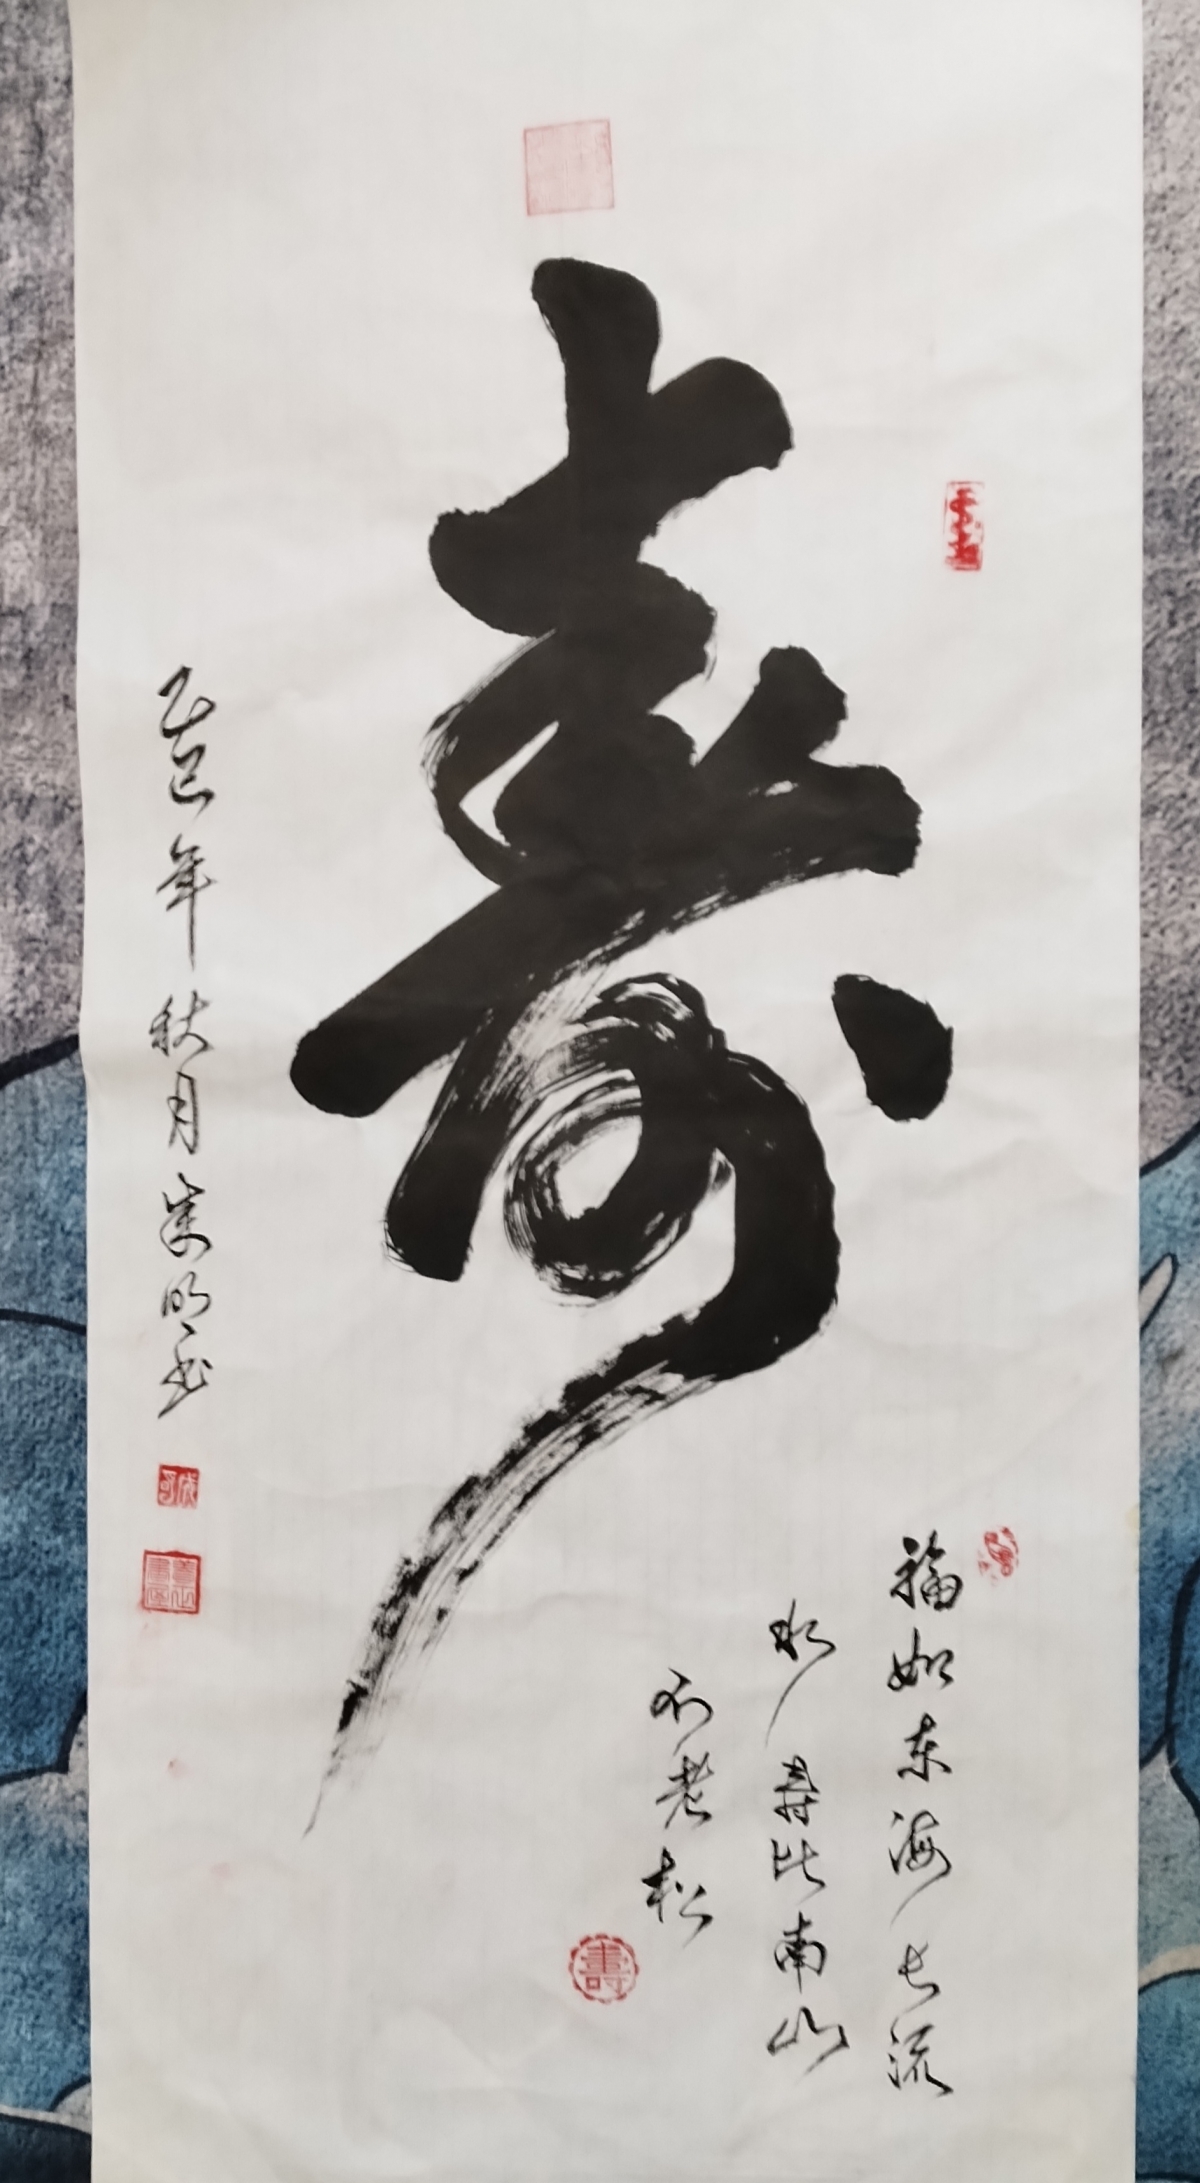 寿
福如东海长流
水寿比南山
不老松
乙巳年秋月
明书
壽